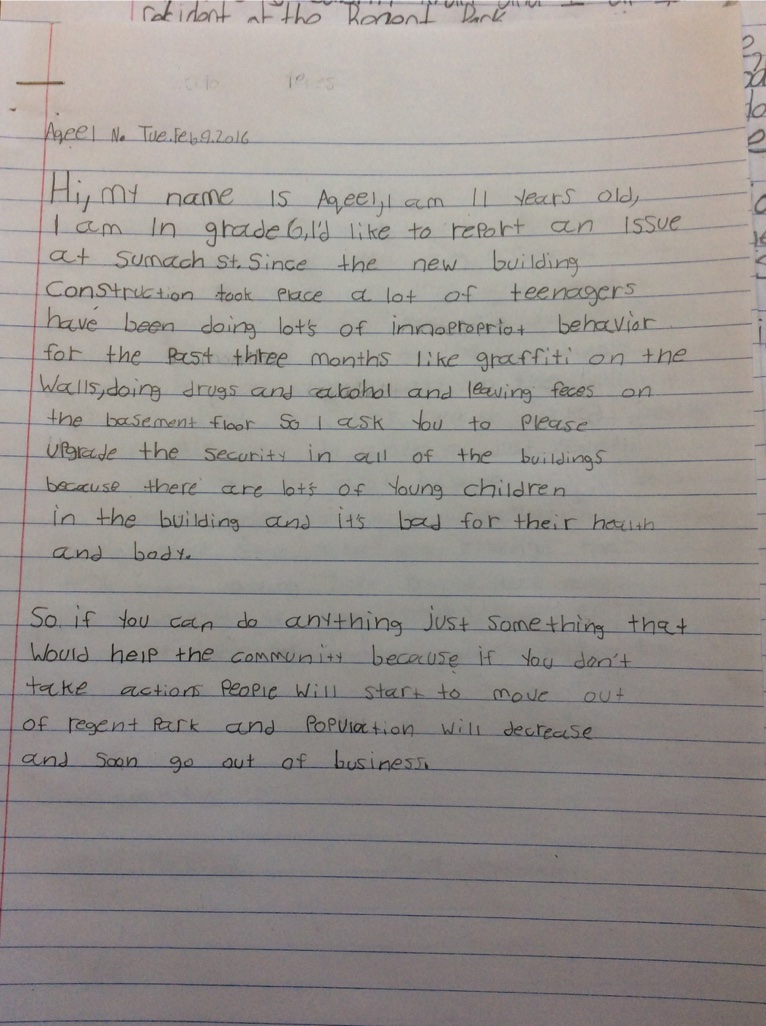 at the Park
Aqeel N. Tue.Feb 9.2016
Hi, my name is Aqeel, I am 11 years old,
I am in grade 6, I'd like to report an issue
at Sumach st. Since the new building
Construction took place a lot of teenagers
have been doing lot's of innoproprit behavior
for the past three months like graffiti on the
Walls, doing drugs and alcohol and leaving feces on
the basement floor So I ask you to please
upgrade the security in all of the buildings
because there are lot's of young children
in the building and it's bad for their health
and body.
So if you can do anything just something that
Would help the community because if you don't
take actions people will start to move out
of regent Park and population will decrease
and soon go out of business.